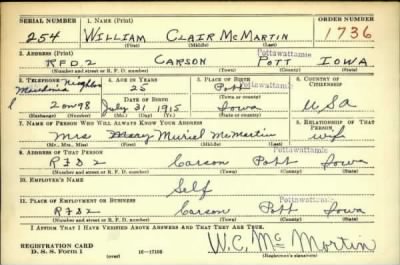 SERIAL NUMBER 1. NAME (Print) ORDER NUMBER
254 WILLIAM CLAIR McMARTIN 1736
(First) (Middle) (Last)
2. ADDRESS (Print) Pottawattamie
R.F.D. 2 CARSON POTT IOWA
(Number and street or R. F. D. number) (Town) (County) (State)
3. TELEPHONE Neighbor 4. AGE IN YEARS 5. PLACE OF BIRTH 6. COUNTRY OF CITIZENSHIP
Macedonia 25 Pott Pottawattamie
DATE OF BIRTH (Town)
2 on 98 July 31 1915 Iowa USA
(Exchange) (Number) (Mo.) (Day) (Yr.) (State or country)
7. NAME OF PERSON WHO WILL ALWAYS KNOW YOUR ADDRESS 8. RELATIONSHIP OF THAT PERSON
Mrs Mary Muriel McMartin wife
(Mr., Mrs., Miss) (First) (Middle) (Last)
9. ADDRESS OF THAT PERSON Pottawattamie
RFD 2 Carson Pott Iowa
(Number and street or R. F. D. number) (Town) (County) (State)
10. EMPLOYER'S NAME
Self
11. PLACE OF EMPLOYMENT OR BUSINESS Pottawattamie
RFD 2 Carson Pott Iowa
(Number and street or R. F. D. number) (Town) (County) (State)
I AFFIRM THAT I HAVE VERIFIED ABOVE ANSWERS AND THAT THEY ARE TRUE.
REGISTRATION CARD W.C. McMartin
D. S. S. Form 1 (over) 16—17105 (Registrant's signature)